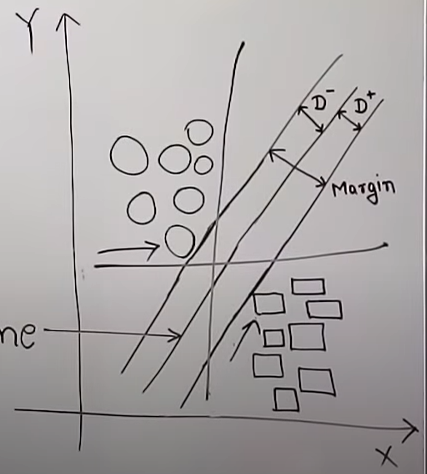 Y
D⁻ D⁺
Margin
ne
X